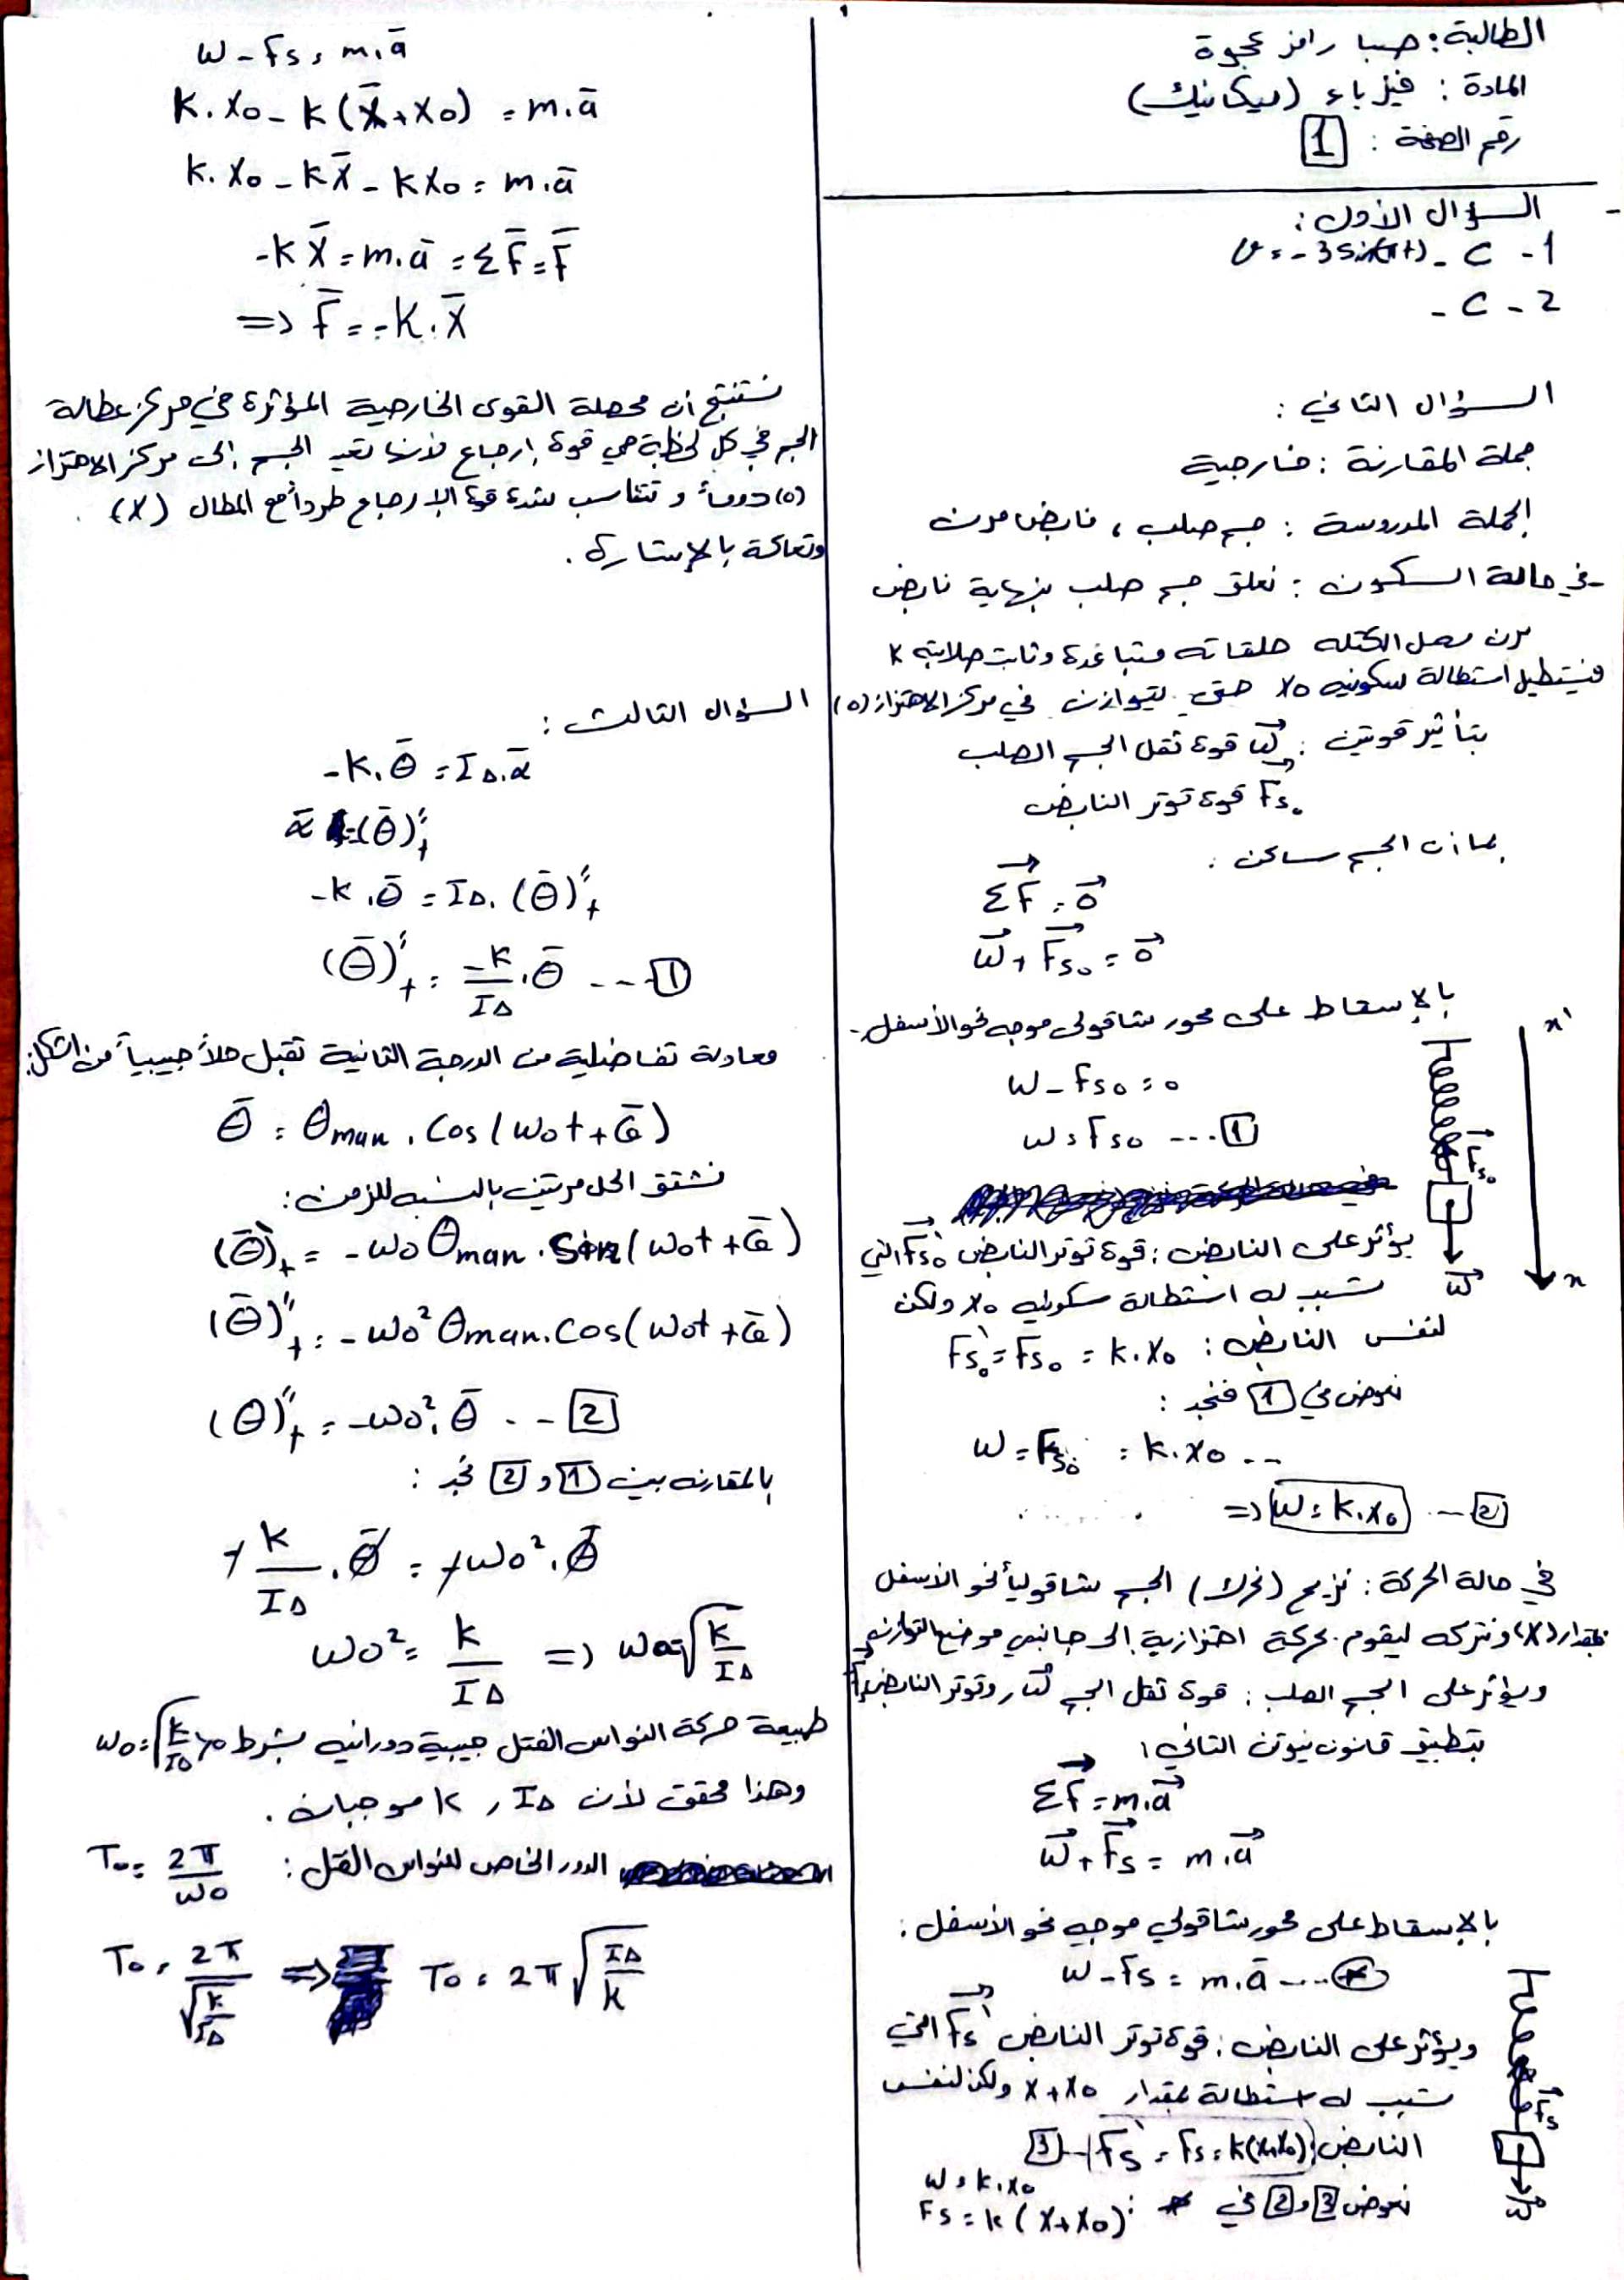 الطالبة: صبا رامز عجوة
المادة: فيزياء (ميكانيك)
رقم الصفحة: 1
السؤال الأول:
1 - C - v = -3 sin(πt)
2 - C -
السؤال الثاني:
جملة المقارنة: خارجية
الجملة المدروسة: جسم صلب، نابض مرن
- في حالة السكون: نعلق جسم صلب بنهاية نابض
مرن مهمل الكتلة حلقاته متباعدة وثابت صلابته k
فيستطيل استطالة سكونية x₀ حتى يتوازن في مركز الاهتزاز (o)
بتأثير قوتين: W⃗ قوة ثقل الجسم الصلب
F⃗s₀ قوة توتر النابض
بما أن الجسم ساكن:
ΣF⃗ = 0⃗
W⃗ + F⃗s₀ = 0⃗
بالإسقاط على محور شاقولي موجه نحو الأسفل.
x'
W - Fs₀ = 0
W = Fs₀ .... 1
F⃗s₀
W⃗
x
يؤثر على النابض: قوة توتر النابض F⃗s₀' التي
تسبب له استطالة سكونية x₀ ولكن
لنفس النابض: Fs₀' = Fs₀ = k.x₀
نعوض في 1 فنجد:
W = Fs₀ = k.x₀ ..
=> W = k.x₀ ... 2
في حالة الحركة: نزيح (نحرك) الجسم شاقولياً نحو الأسفل
بمقدار (x) ونتركه ليقوم بحركة اهتزازية إلى جانبي موضع التوازن
ويؤثر على الجسم الصلب: قوة ثقل الجسم W⃗, وتوتر النابض F⃗s
بتطبيق قانون نيوتن الثاني:
ΣF⃗ = m.a⃗
W⃗ + F⃗s = m.a⃗
بالإسقاط على محور شاقولي موجه نحو الأسفل:
W - Fs = m.ā .... *
ويؤثر على النابض: قوة توتر النابض F⃗s' التي
تسبب له استطالة بمقدار x+x₀ ولكن لنفس
F⃗s
النابض: Fs' = Fs = k(x+x₀) - 3
W⃗
نعوض 3 و 2 في *:
W = k.x₀
Fs = k(x+x₀)
W - Fs = m.ā
k.x₀ - k(x̄+x₀) = m.ā
k.x₀ - kx̄ - kx₀ = m.ā
-k x̄ = m.ā = ΣF̄ = F̄
=> F̄ = -k.x̄
نستنتج أن محصلة القوى الخارجية المؤثرة في مركز عطالة
الجسم في كل لحظة هي قوة إرجاع لأنها تعيد الجسم إلى مركز الاهتزاز
(o) دوماً و تتناسب شدة قوة الإرجاع طرداً مع المطال (x).
وتعاكسه بالإشارة.
السؤال الثالث:
-k.θ̄ = I∆.ᾱ
ᾱ = (θ̄)''t
-k.θ̄ = I∆.(θ̄)''t
(θ̄)''t = -k/I∆ .θ̄ --- 1
معادلة تفاضلية من الدرجة الثانية تقبل حلاً جيبياً من الشكل:
θ̄ = θmax . cos(ω₀t + φ̄)
نشتق الحل مرتين بالنسبه للزمن:
(θ̄)'t = -ω₀ θmax . sin(ω₀t + φ̄)
(θ̄)''t = -ω₀² θmax.cos(ω₀t + φ̄)
(θ)''t = -ω₀².θ̄ -- 2
بالمقارنه بين 1 و 2 نجد:
-k/I∆ .θ̄ = -ω₀².θ̄
ω₀² = k/I∆ => ω₀ = √(k/I∆)
طبيعة حركة النواس الفتل جيبية دورانيه بشرط ω₀ = √(k/I∆) > 0
وهذا محقق لأن k , I∆ موجبان.
الدور الخاص للنواس الفتل: T₀ = 2π/ω₀
T₀ = 2π/√(k/I∆) => T₀ = 2π √(I∆/k)